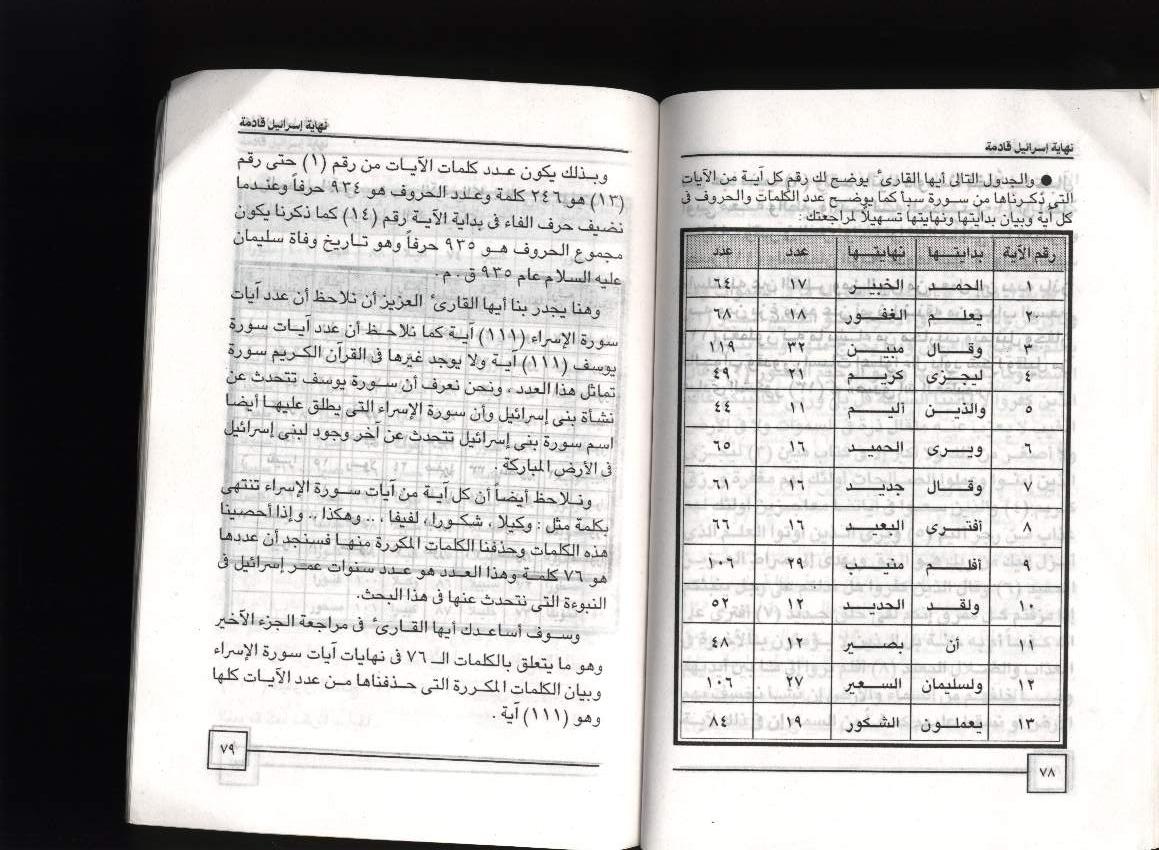 نهاية إسرائيل قادمة
● والجدول التالى أيها القارئ يوضح لك رقم كل آية من الآيات
التى ذكرناها من سورة سبأ كما يوضح عدد الكلمات والحروف فى
كل آية وبيان بدايتها ونهايتها تسهيلاً لمراجعتك :
رقم الآية بدايتها نهايتها عدد عدد
١ الحمد الخبير ١٧ ٦٤
٢ يعلم الغفور ١٨ ٦٨
٣ وقال مبين ٣٢ ١١٩
٤ ليجزى كريم ٢١ ٤٩
٥ والذين أليم ١١ ٤٤
٦ ويرى الحميد ١٦ ٦٥
٧ وقال جديد ١٦ ٦١
٨ أفترى البعيد ١٦ ٦٦
٩ أفلم منيب ٢٩ ١٠٦
١٠ ولقد الحديد ١٢ ٥٢
١١ أن بصير ١٢ ٤٨
١٢ ولسليمان السعير ٢٧ ١٠٦
١٣ يعملون الشكور ١٩ ٨٤
٧٨
نهاية إسرائيل قادمة
وبذلك يكون عدد كلمات الآيات من رقم (١) حتى رقم
(١٣) هو ٢٤٦ كلمة وعدد الحروف هو ٩٣٤ حرفاً وعندما
نضيف حرف الفاء فى بداية الآية رقم (١٤) كما ذكرنا يكون
مجموع الحروف هو ٩٣٥ حرفاً وهو تاريخ وفاة سليمان
عليه السلام عام ٩٣٥ ق . م .
وهنا يجدر بنا أيها القارئ العزيز أن نلاحظ أن عدد آيات
سورة الإسراء (١١١) آية كما نلاحظ أن عدد آيات سورة
يوسف (١١١) آية ولا يوجد غيرها فى القرآن الكريم سورة
تماثل هذا العدد ، ونحن نعرف أن سورة يوسف تتحدث عن
نشأة بنى إسرائيل وأن سورة الإسراء التى يطلق عليها أيضا
اسم سورة بنى إسرائيل تتحدث عن آخر وجود لبنى إسرائيل
فى الأرض المباركة .
ونلاحظ أيضاً أن كل آية من آيات سورة الإسراء تنتهى
بكلمة مثل : وكيلا ، شكورا ، لفيفا ، .. وهكذا .. وإذا أحصينا
هذه الكلمات وحذفنا الكلمات المكررة منها فسنجد أن عددها
هو ٧٦ كلمة وهذا العدد هو عدد سنوات عمر إسرائيل فى
النبوءة التى نتحدث عنها فى هذا البحث.
وسوف أساعدك أيها القارئ فى مراجعة الجزء الأخير
وهو ما يتعلق بالكلمات الـ ٧٦ فى نهايات آيات سورة الإسراء
وبيان الكلمات المكررة التى حذفناها من عدد الآيات كلها
وهو (١١١) آية .
٧٩